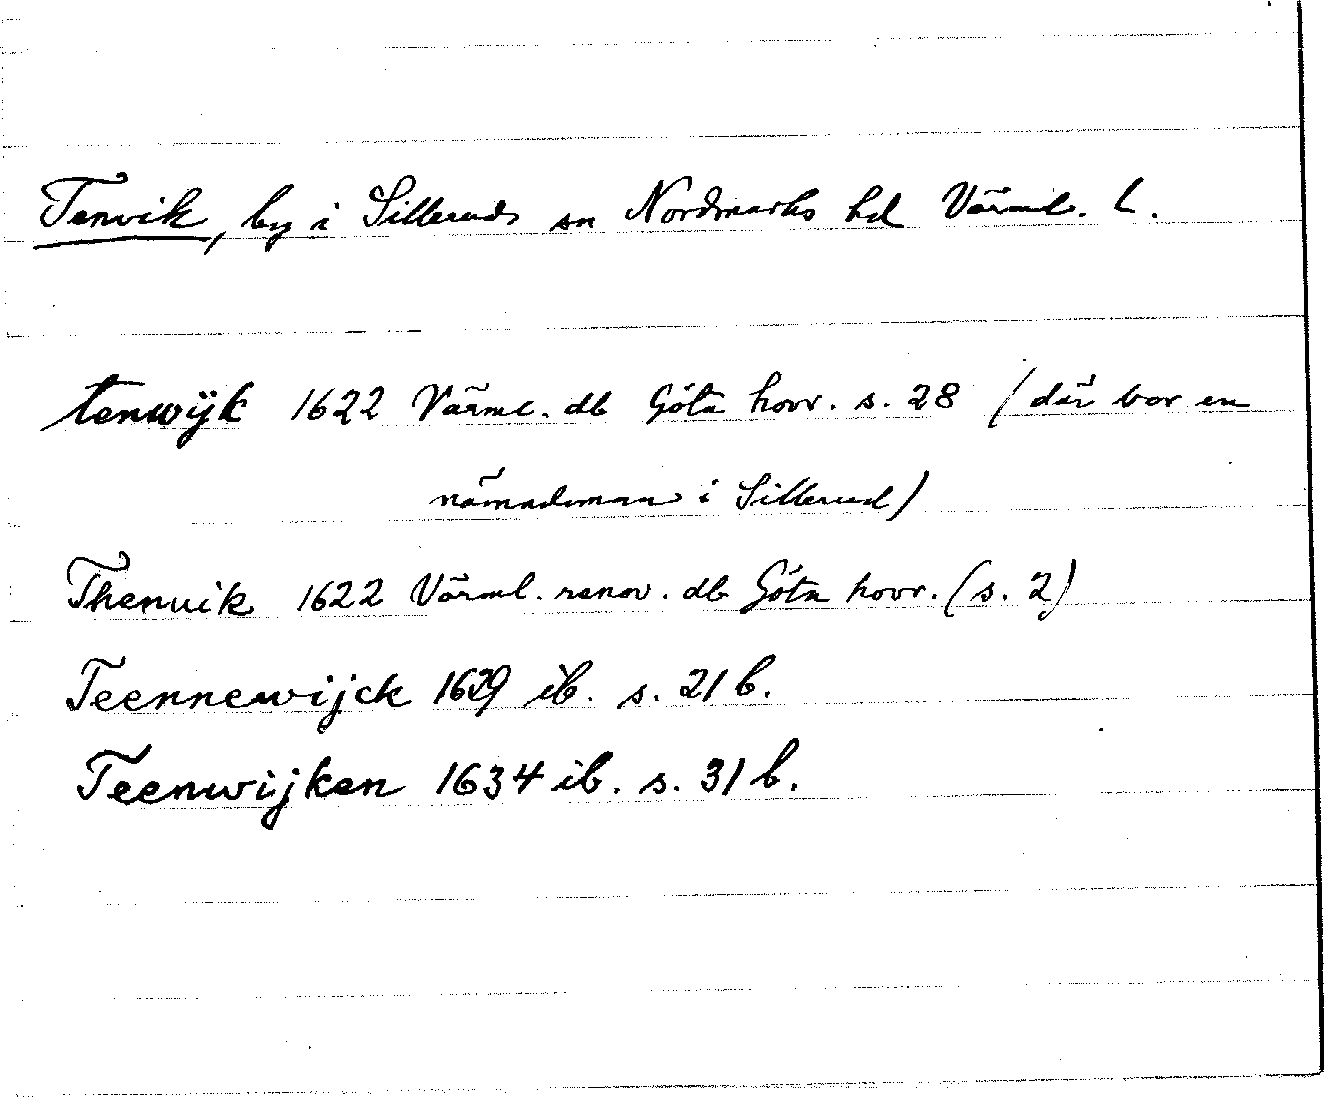 Tenvik, by i Silleruds sn Nordmarks hd Värml. l.
tenwÿk 1622 Värml. db Göta hovr. s. 28 (där bor en
nämndeman i Sillerud)
Thenuik 1622 Värml. renov. db Göta hovr. (s. 2)
Teennewijck 1629 ib. s. 21 b.
Teenwijken 1634 ib. s. 31 b.